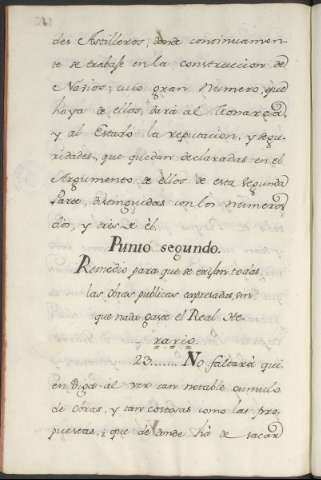 des Astilleros, donde continuamen-
te se trabaje en la construccion de
Navios, cuio gran numero, que
haya de ellos, dará al Monarca,
y al Estado la reputacion, y segu-
ridades, que quedan declaradas en el
Argumento de ellos de esta segunda
Parte, distinguidas con los numeros
dos, y tres de él.
Punto segundo.
Remedio para que se erijan todas
las obras publicas expresadas, sin
que nada gaste el Real He-
rario.
23....... No faltará quien
diga al ver tan notable cumulo
de obras, y tan costosas como las pro-
puestas, ¿que de donde há de sacar